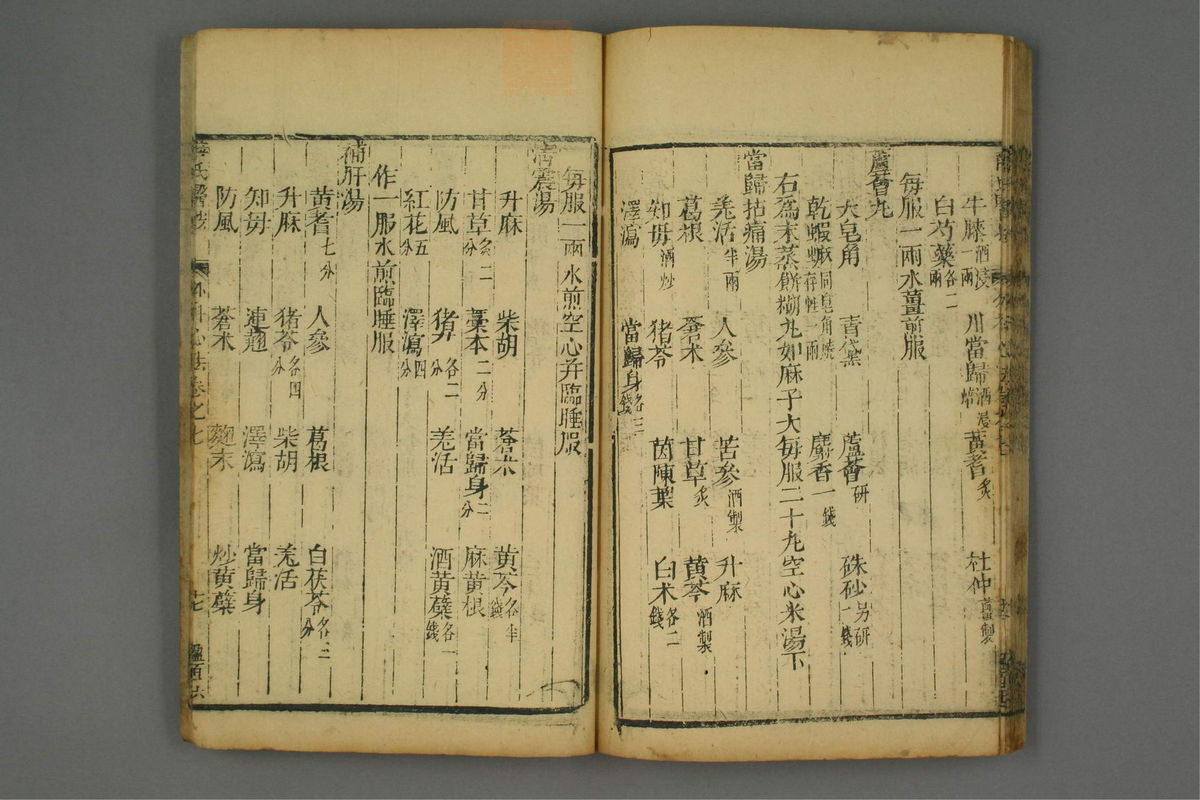 牛膝酒浸一兩 川當歸酒浸焙 黃耆炙 杜仲薑製
白芍藥各二兩
每服一兩水薑煎服
蘆薈丸
大皂角 青黛 蘆薈研 硃砂另研一錢
乾蝦蟆同皂角燒存性一兩 麝香一錢
右為末蒸餅糊丸如麻子大每服二十丸空心米湯下
當歸拈痛湯
羗活半兩 人參 苦參酒製 升麻
葛根 蒼朮 甘草炙 黃芩酒製
知毋酒炒 猪苓 茵陳葉 白朮各二錢
澤瀉 當歸身各三錢
每服一兩水煎空心并臨睡服
清震湯
升麻 柴胡 蒼朮 黃芩各半錢
甘草炙二分 藁本二分 當歸身二分 麻黃根
防風 猪苓各二分 羗活 酒黃蘗各一錢
紅花五分 澤瀉四分
作一服水煎臨睡服
補肝湯
黃耆七分 人參 葛根 白茯苓各三分
升麻 猪苓各四分 柴胡 羗活
知毋 連翹 澤瀉 當歸身
防風 蒼朮 麯末 炒黃蘗
薛氏醫 外科心法卷之七 十七